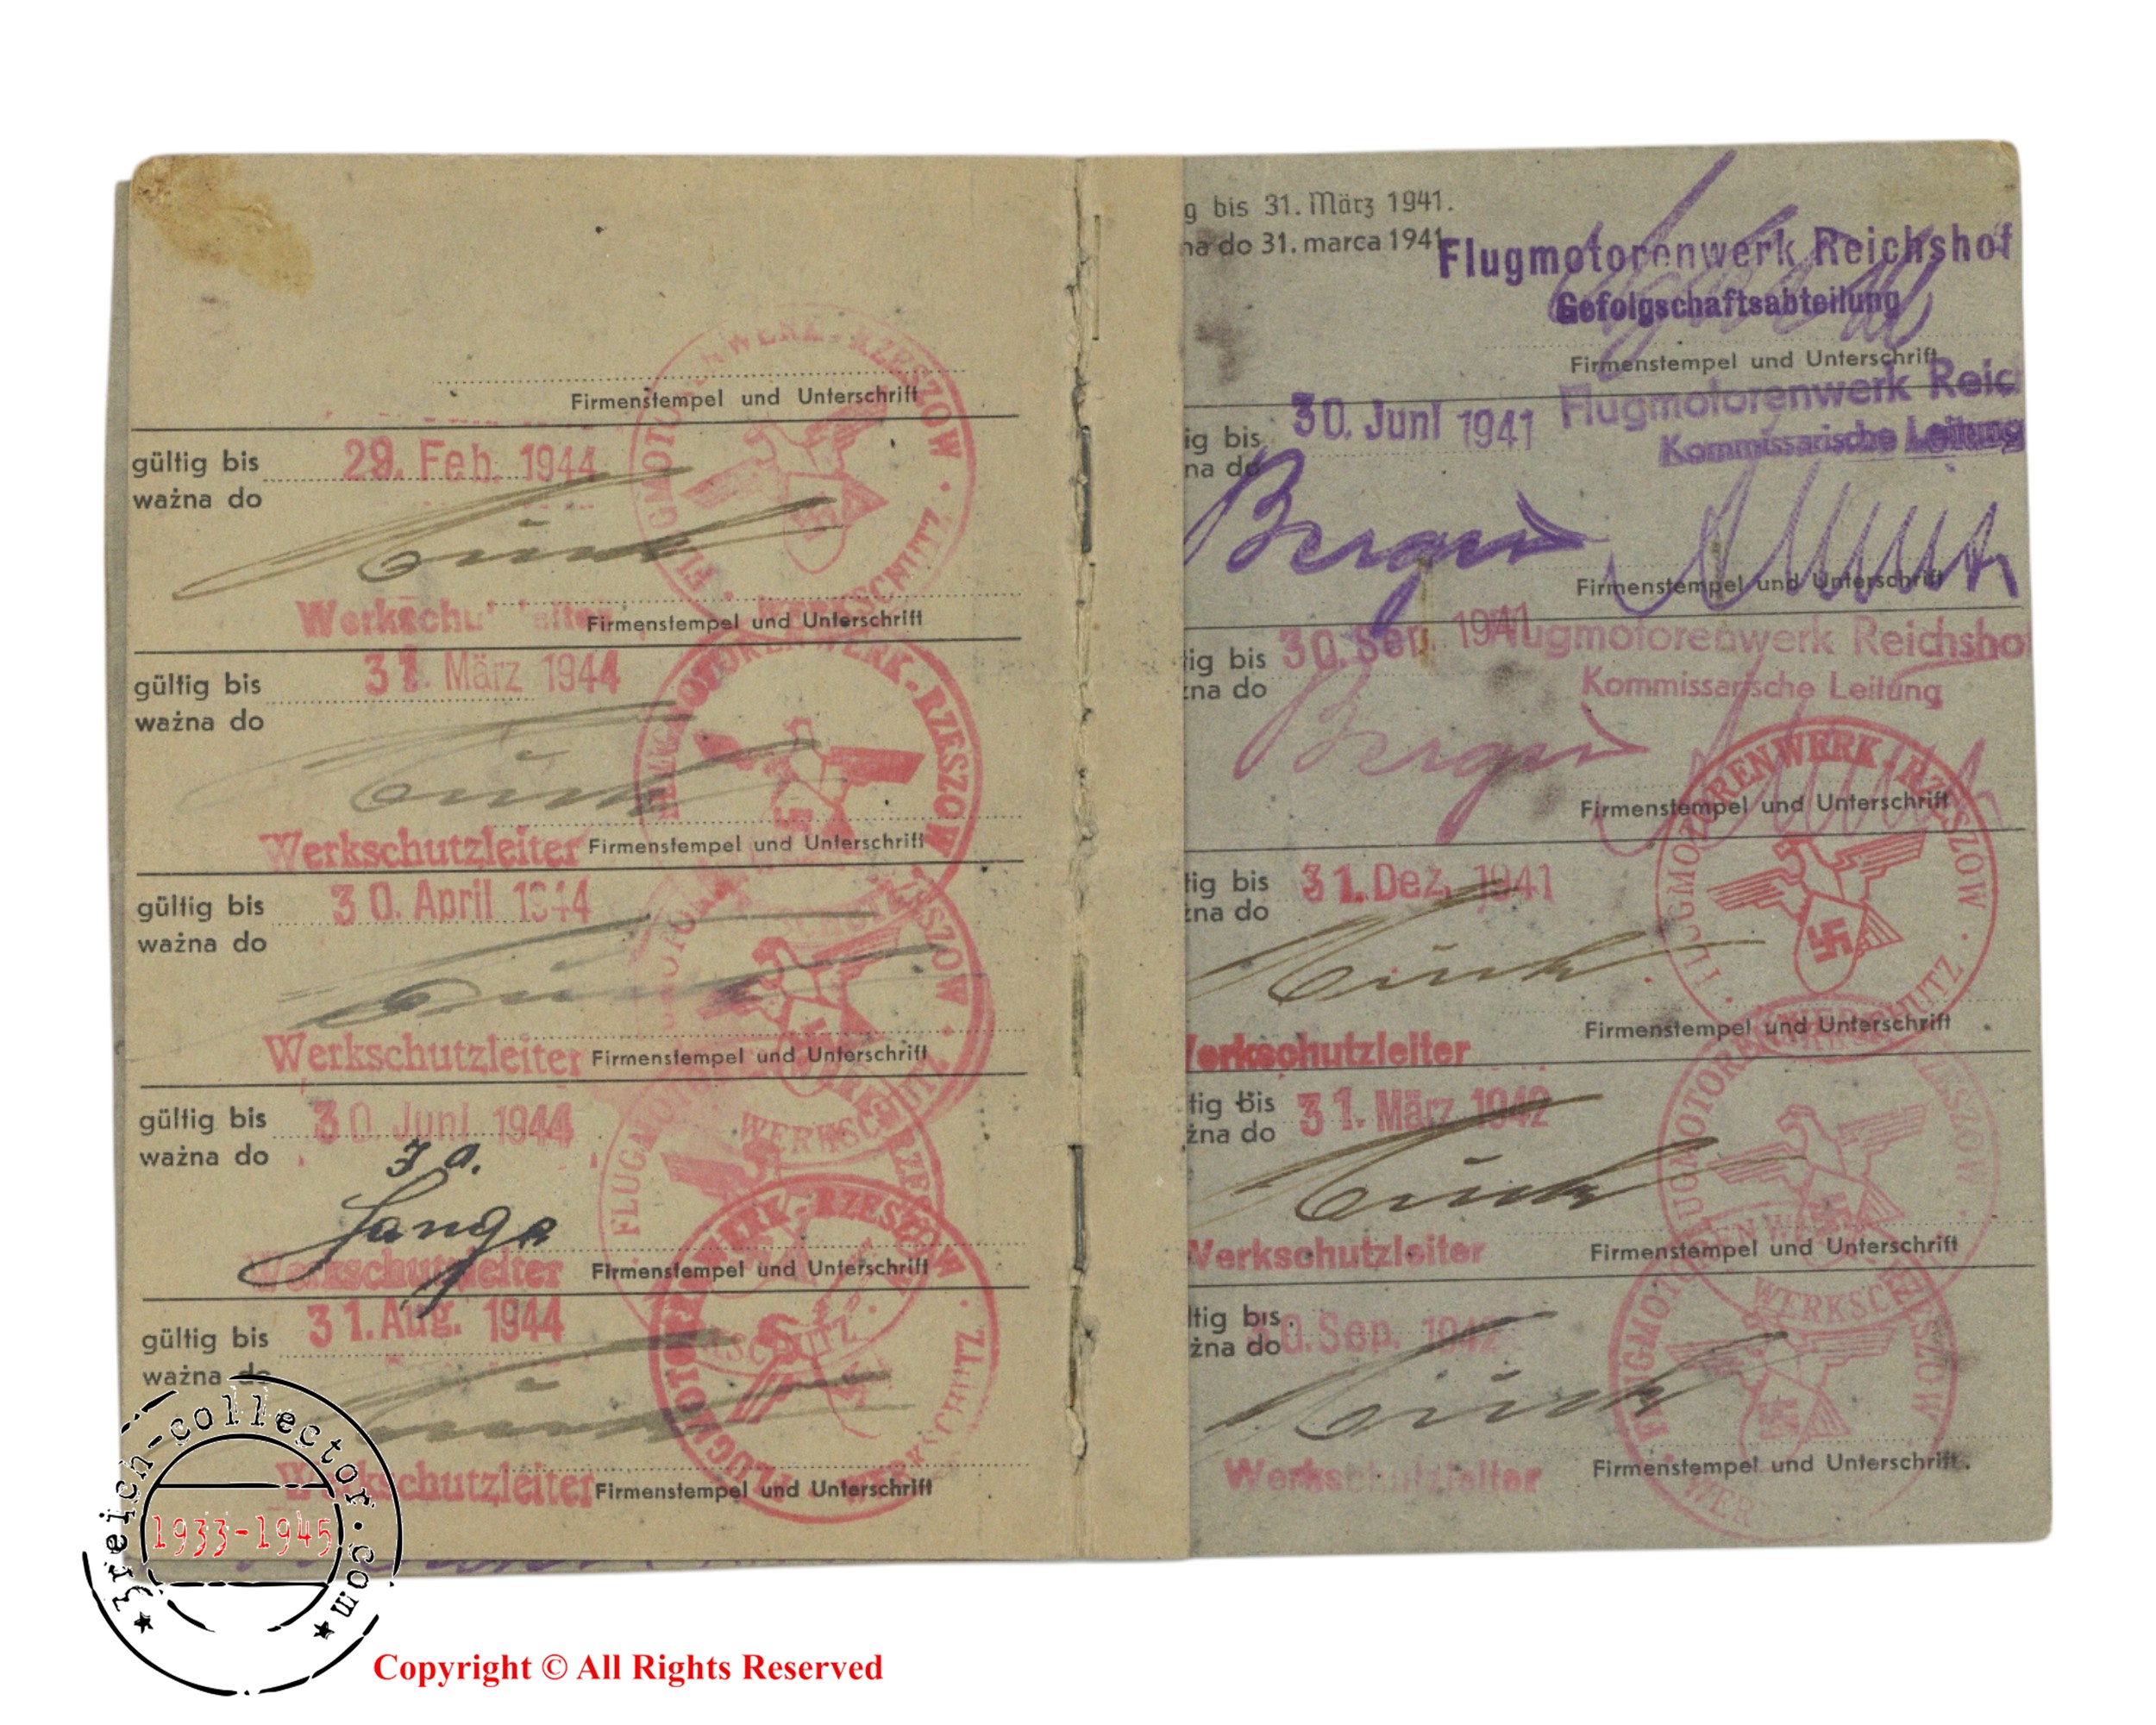 Firmenstempel und Unterschrift
FLUGMOTORENWERK - RZESZOW · WERKSCHUTZ ·
gültig bis 29. Feb. 1944
ważna do
Firmenstempel und Unterschrift
gültig bis 31. März 1944
ważna do
FLUGMOTORENWERK - RZESZOW
Werkschutzleiter Firmenstempel und Unterschrift
gültig bis 30. April 1944
ważna do
Werkschutzleiter Firmenstempel und Unterschrift
WERKSCHUTZ
gültig bis 30. Juni 1944
ważna do
Lange
Werkschutzleiter Firmenstempel und Unterschrift
gültig bis 31. Aug. 1944
ważna do
FLUGMOTORENWERK - RZESZOW · WERKSCHUTZ
Werkschutzleiter Firmenstempel und Unterschrift
g bis 31. März 1941.
na do 31. marca 1941
Flugmotorenwerk Reichshof
Gefolgschaftsabteilung
Firmenstempel und Unterschrift
Flugmotorenwerk Reic
Kommissarische Leitung
ig bis 30. Juni 1941
na do
Berger
Firmenstempel und Unterschrift
ig bis 30. Sep. 1941
lugmotorenwerk Reichshof
Kommissarische Leitung
na do
Berger
Firmenstempel und Unterschrift
tig bis 31. Dez. 1941
na do
FLUGMOTORENWERK - RZESZOW · WERKSCHUTZ ·
Firmenstempel und Unterschrift
Werkschutzleiter
tig bis 31. März 1942
żna do
Werkschutzleiter Firmenstempel und Unterschrift
ltig bis 30. Sep. 1942
żna do
Werkschutzleiter Firmenstempel und Unterschrift.
3reich-collector.com
1933-1945
Copyright © All Rights Reserved